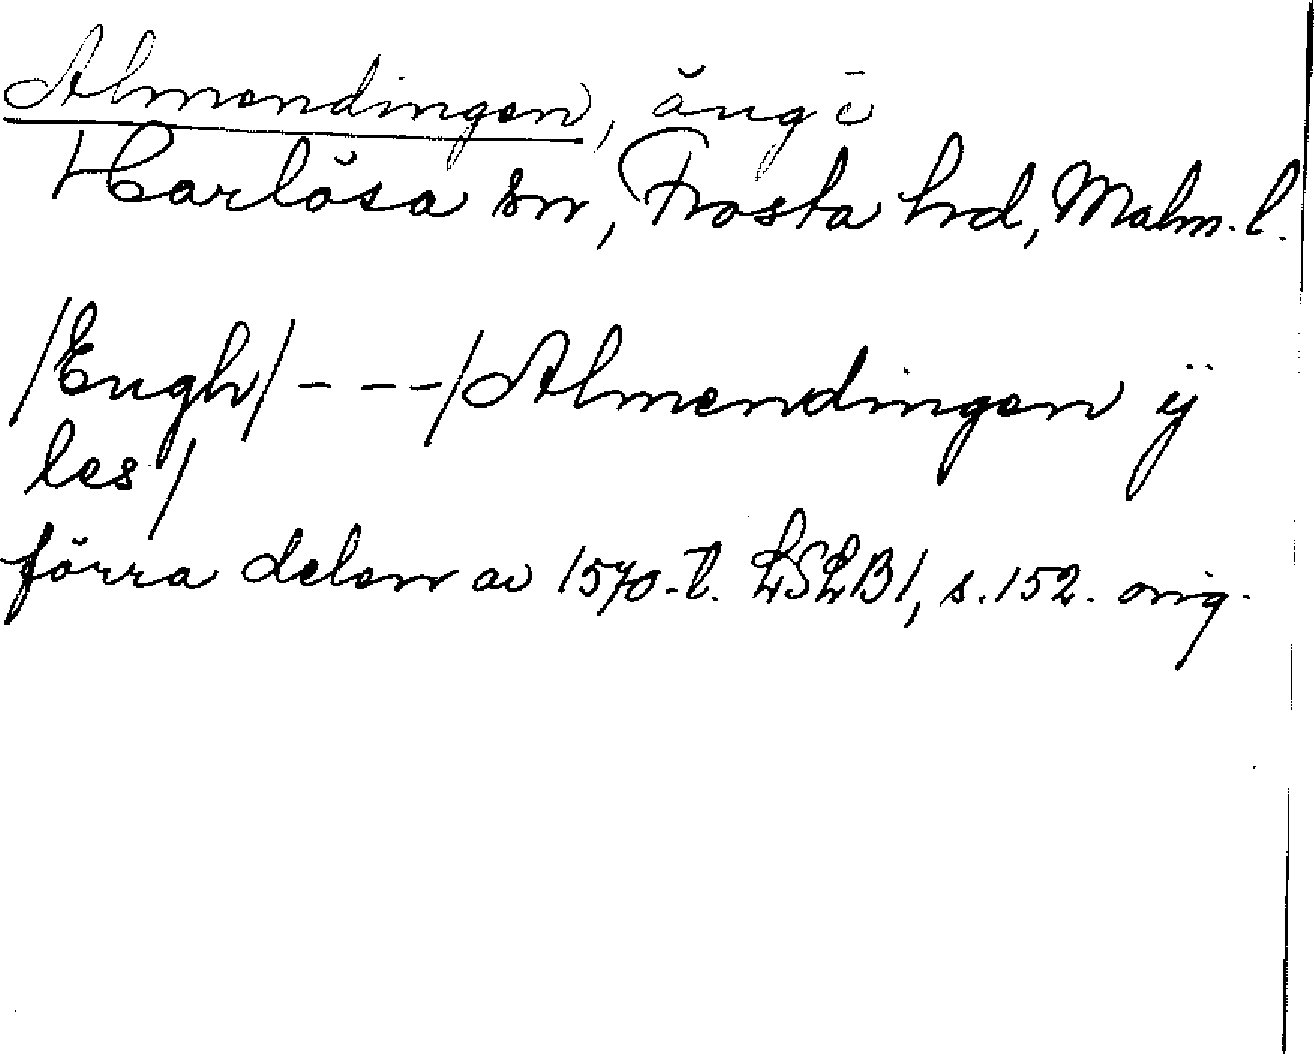 Almendingen, äng i
Harlösa sn, Frosta hd, Malm. l.
/Engh/ - - - / Almendingen ÿ
les /
förra delen av 1570-t. LSLB1, s. 152. orig.